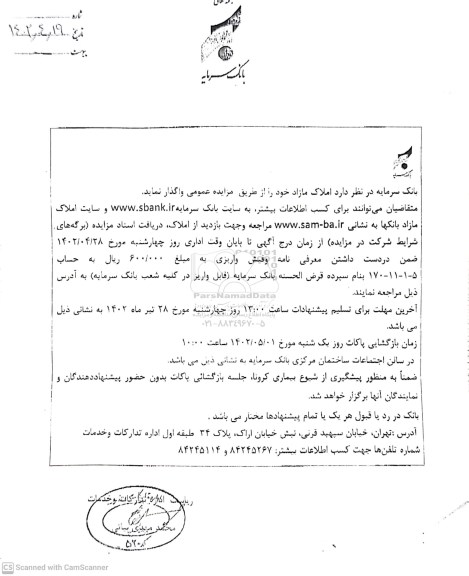 شماره
تاریخ ۱۴۰۲,۴,۱۹
پیوست
بانک سرمایه
بانک سرمایه در نظر دارد املاک مازاد خود را از طریق مزایده عمومی واگذار نماید.
متقاضیان می‌توانند برای کسب اطلاعات بیشتر، به سایت بانک سرمایه www.sbank.ir و سایت املاک
مازاد بانکها به نشانی www.sam-ba.ir مراجعه وجهت بازدید از املاک، دریافت اسناد مزایده (برگه‌های
شرایط شرکت در مزایده) از زمان درج آگهی تا پایان وقت اداری روز چهارشنبه مورخ ۱۴۰۲/۰۴/۲۸
ضمن دردست داشتن معرفی نامه وفیش واریزی به مبلغ ۶۰۰/۰۰۰ ریال به حساب
۱۷۰-۱۱-۱-۵ بنام سپرده قرض الحسنه بانک سرمایه (قابل واریز در کلیه شعب بانک سرمایه) به آدرس
ذیل مراجعه نمایند.
آخرین مهلت برای تسلیم پیشنهادات ساعت ۱۳:۰۰ روز چهارشنبه مورخ ۲۸ تیر ماه ۱۴۰۲ به نشانی ذیل
می باشد.
زمان بازگشایی پاکات روز یک شنبه مورخ ۱۴۰۲/۰۵/۰۱ ساعت ۱۰:۰۰
در سالن اجتماعات ساختمان مرکزی بانک سرمایه به نشانی ذیل می باشد.
ضمناً به منظور پیشگیری از شیوع بیماری کرونا، جلسه بازگشائی پاکات بدون حضور پیشنهاددهندگان و
نمایندگان آنها برگزار خواهد شد.
بانک در رد یا قبول هر یک یا تمام پیشنهادها مختار می باشد.
آدرس :تهران، خیابان سپهبد قرنی، نبش خیابان اراک، پلاک ۳۴ طبقه اول اداره تدارکات وخدمات
شماره تلفن‌ها جهت کسب اطلاعات بیشتر: ۸۴۲۴۵۲۶۷ و ۸۴۲۴۵۱۱۴
ParsNamadData
۰۲۱-۸۸۳۴۹۶۷۰-۵
CS Scanned with CamScanner